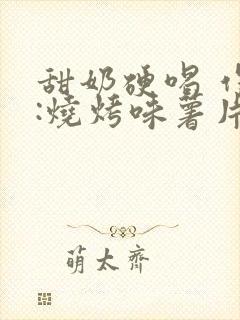 甜奶硬唱
:燒烤味薯片
萌太齊